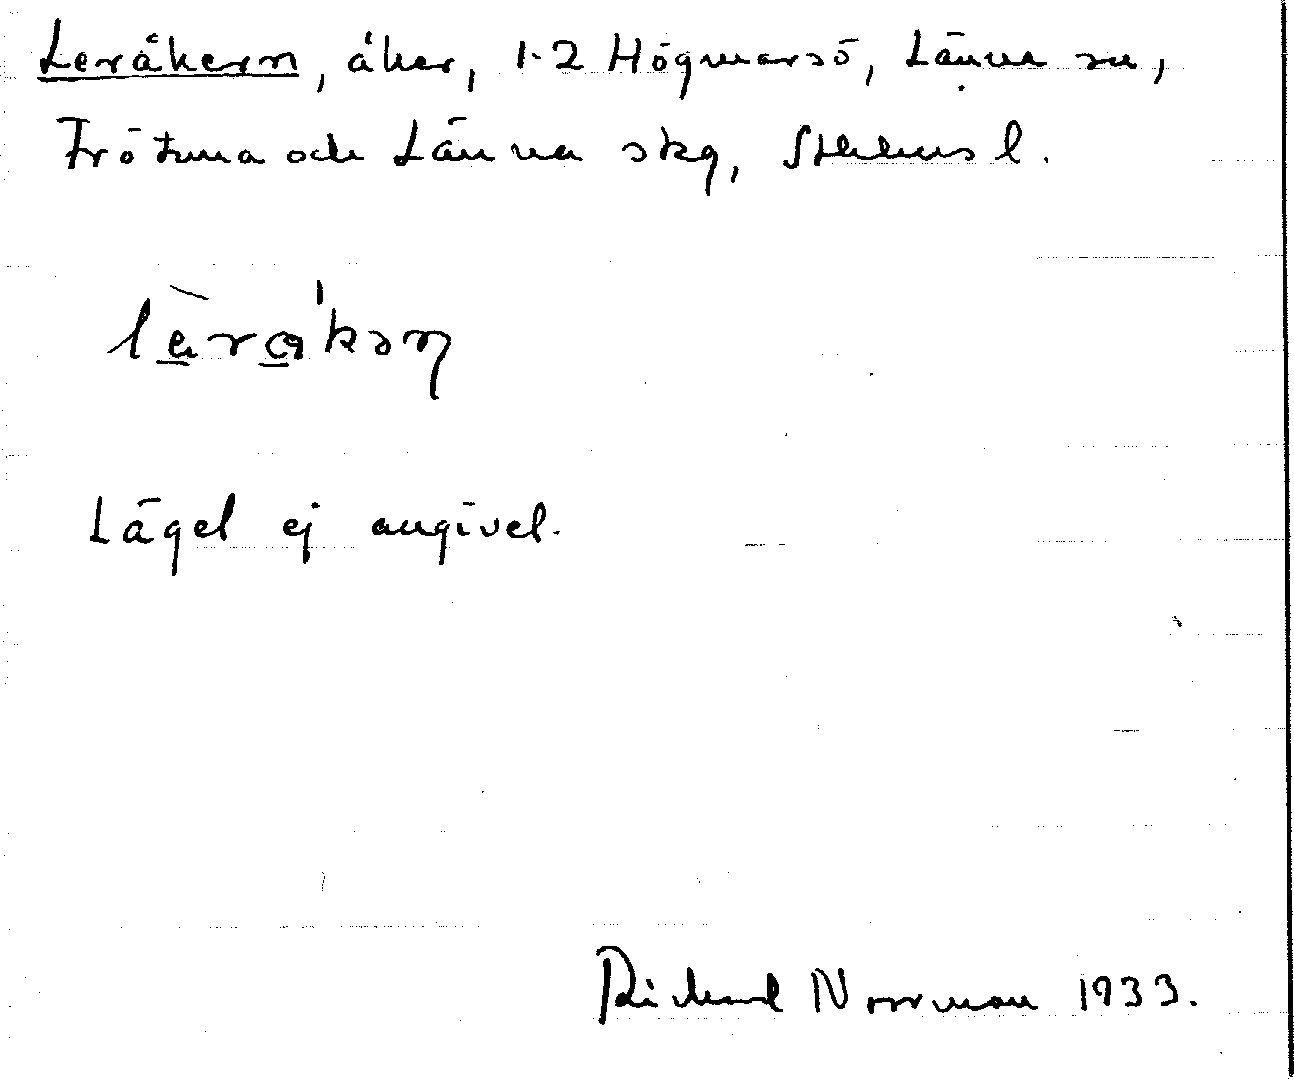 Leråkern, åker, 1-2 Högmarsö, Länna sn,
Frötuna och Länna skg, Sthlms l.
lèrɑ́kəɳ
Läget ej angivet.
Richard Norrman 1933.